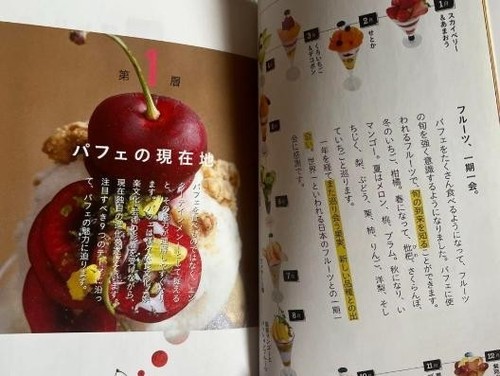 1月
スカイベリー
&あまおう
2月
せとか
3月
くろいちご
&デコポン
フルーツ、一期一会。
パフェをたくさん食べるようになって、フルーツ
の旬を強く意識するようになりました。パフェに使
われるフルーツで、旬の到来を知ることができます。
冬のいちご、柑橘、春になって、枇杷、さくらんぼ、
マンゴー。夏はメロン、桃、プラム。秋になり、い
ちじく、梨、ぶどう、栗、柿、りんご、洋梨、そし
ていちごと巡ります。
一年を経てまた巡り会う果実、新しい品種との出
会い。世界一といわれる日本のフルーツとの一期一
会に感謝です。
7月
8月
11月
12月
第1層
パフェの現在地
注目すべき9つのテーマに沿っ
て、パフェの魅力に迫ります。